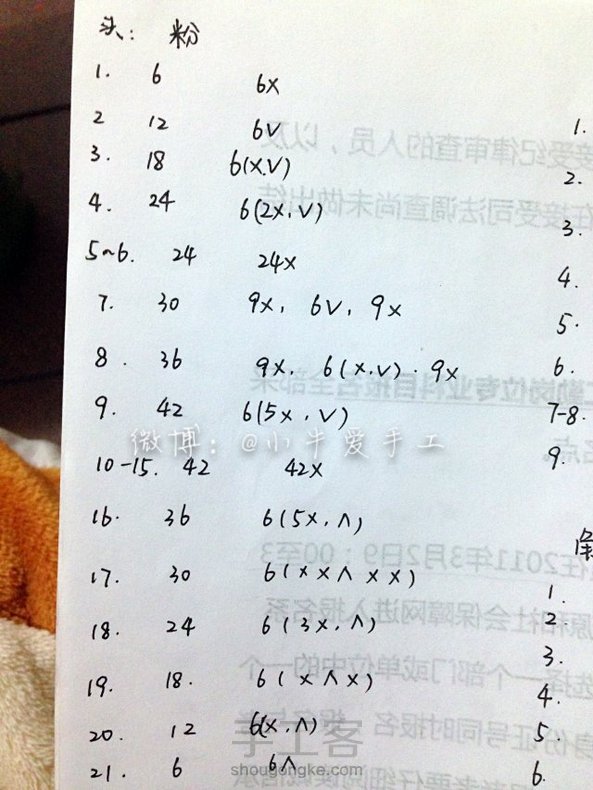 头: 粉
1. 6 6X
2 12 6V
3. 18 6(X.V)
4. 24 6(2X,V)
5~6. 24 24X
7. 30 9X, 6V, 9X
8. 36 9X, 6(X.V). 9X
9. 42 6(5X,V)
微博:@小牛爱手工
10-15. 42 42X
16. 36 6(5X,Λ)
17. 30 6(XXΛXX)
18. 24 6(3X,Λ)
19. 18. 6(XΛX)
20. 12 6(X,Λ)
21. 6 6Λ
1.
2.
3.
4.
5.
6.
7-8.
9.
1.
2.
3.
4.
5.
6.
手工客
shougongke.com